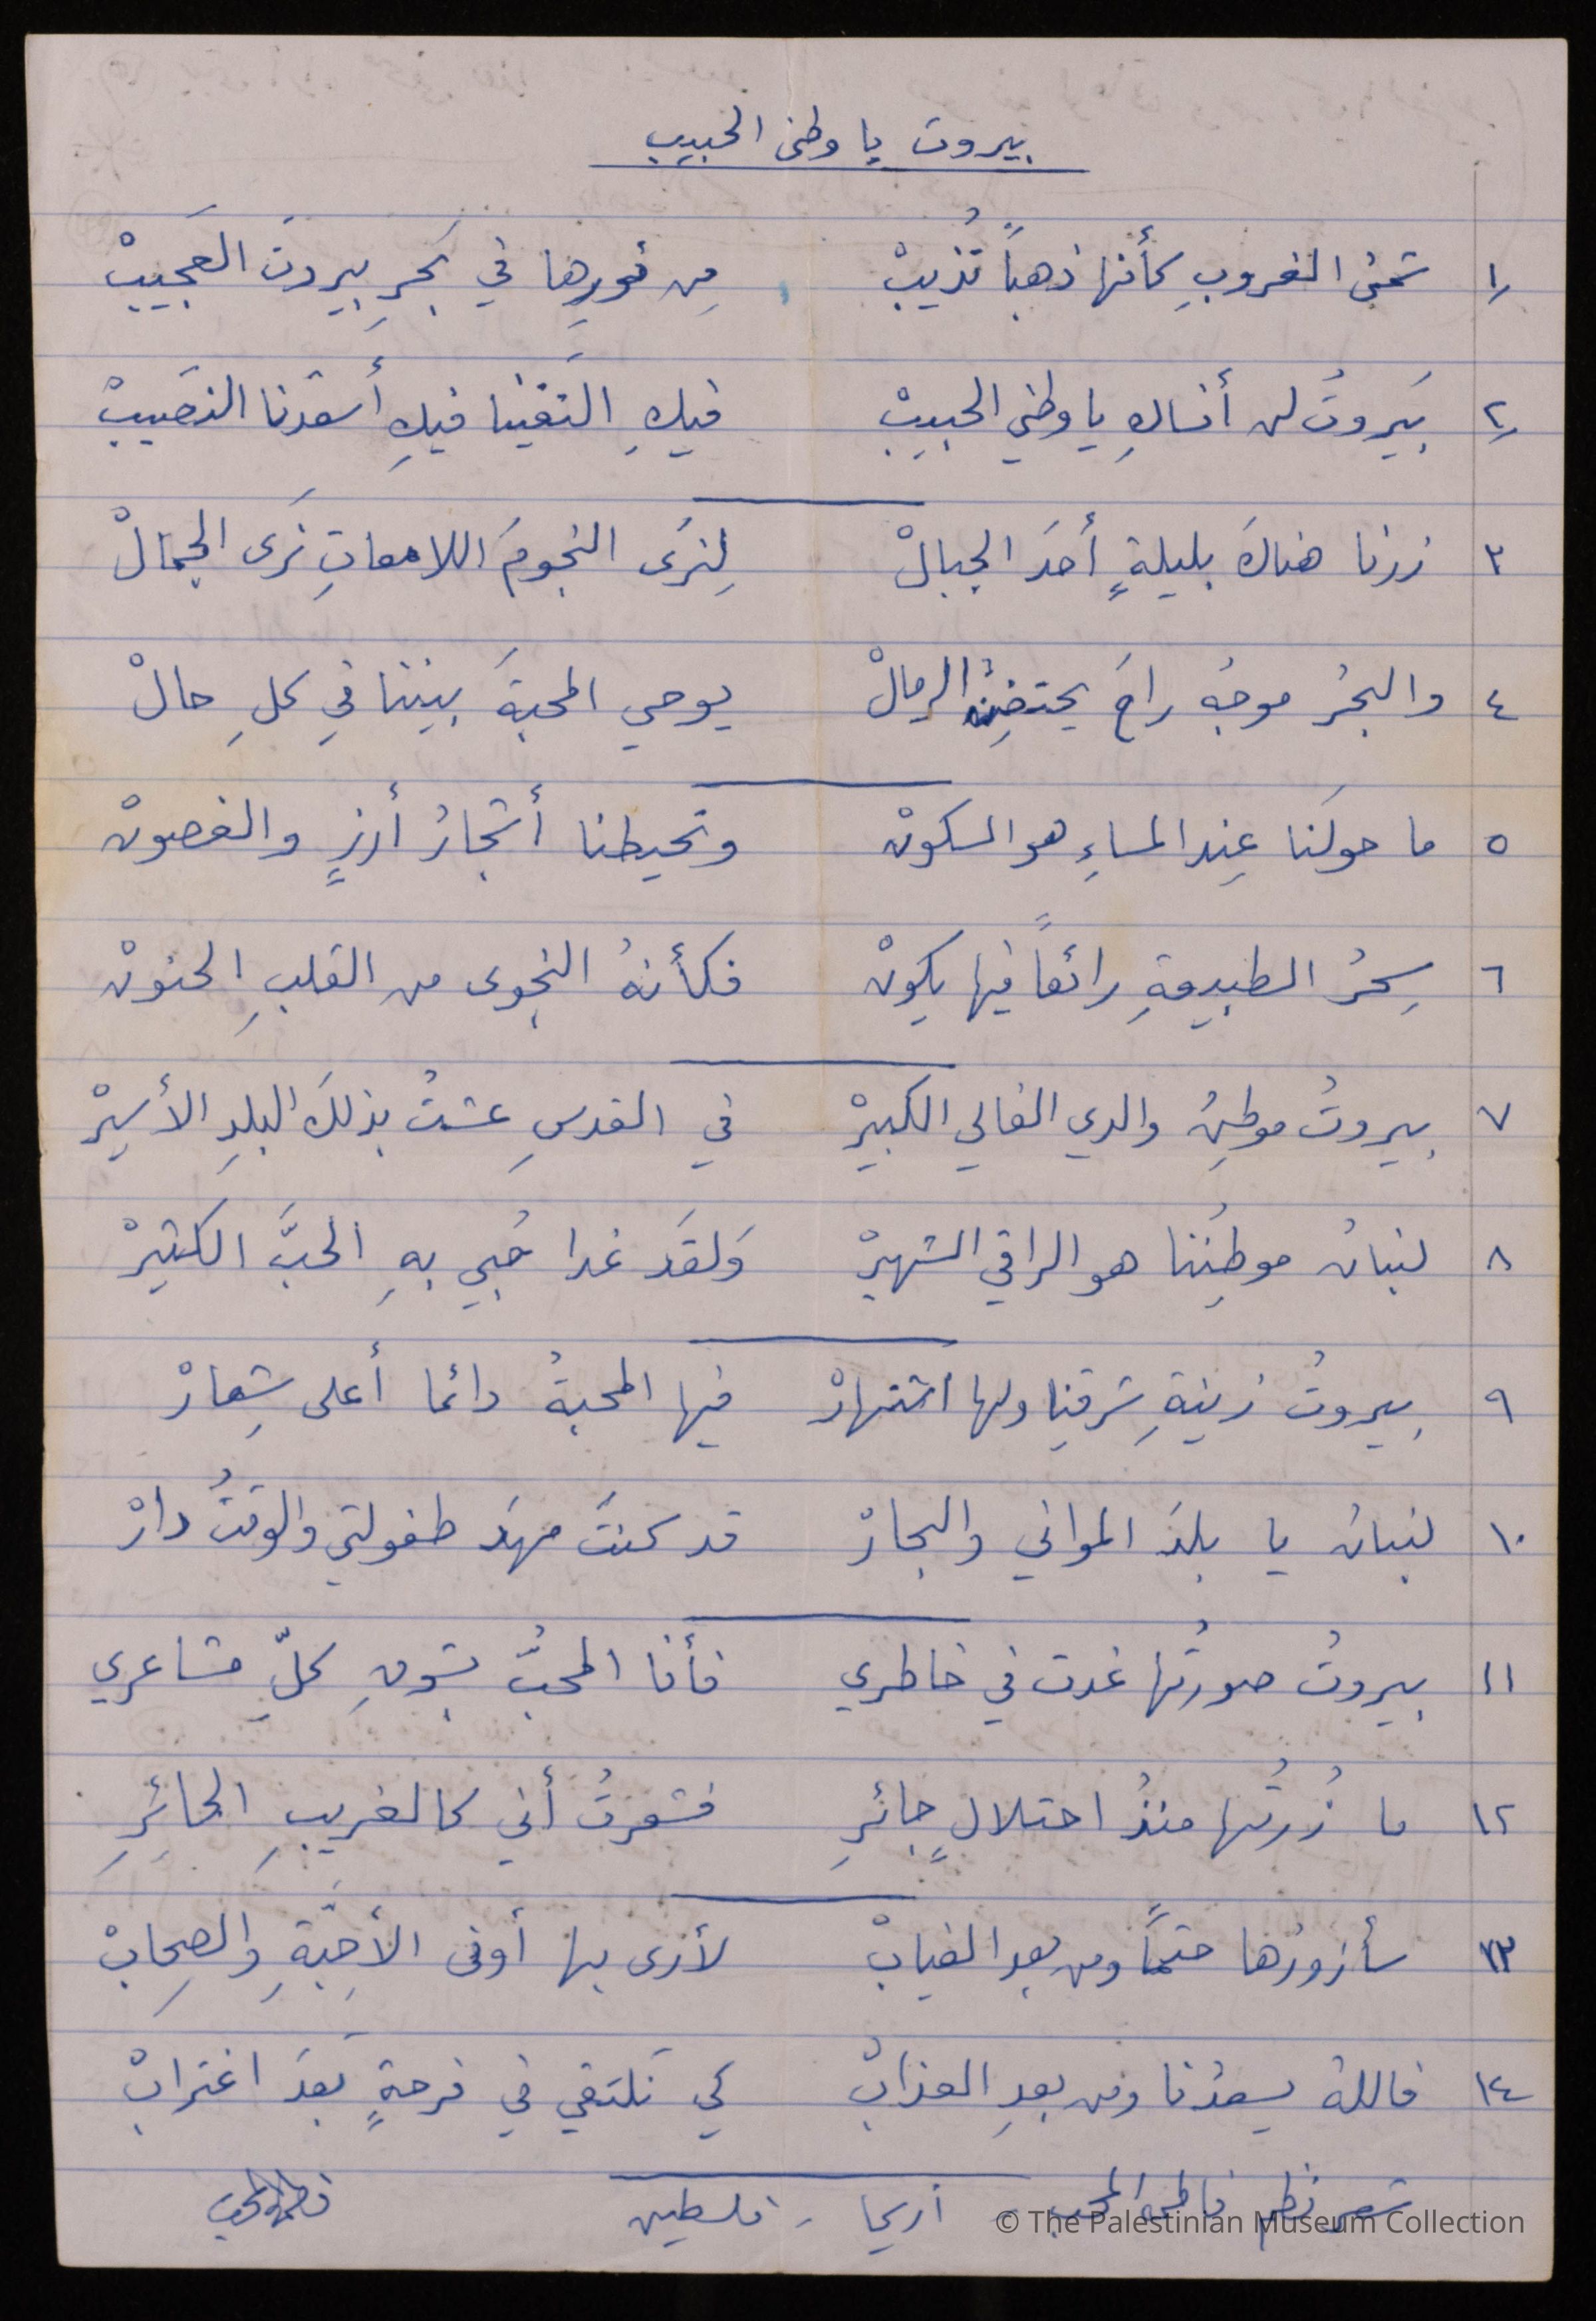 بيروت يا وطني الحبيب
١ شمسُ الغروبِ كأنها ذهباً تُذيبْ مِن نورِها في بَحرِ بيروتَ العَجيبْ
٢ بَيروتُ لن أنساكِ يا وطني الحبيبْ فيكِ التَقينا فيكِ أسعَدَنا النصَيبْ
٣ زرنا هناكَ بليلةٍ أحَدَ الجبالْ لِنرَى النجومَ اللامعاتِ نَرَى الجمالْ
٤ والبحرُ موجُه راحَ يحتضِنُ الرمالْ يوحي المحبةَ بيننا في كلِ حالْ
٥ ما حولَنا عِند المساءِ هو السكونْ وتحيطنا أشجارُ أرزٍ والغصونْ
٦ سِحرُ الطبيعةِ رائعاً فيها يكونْ فكأنهُ النجوى من القلبِ الحنونْ
٧ بيروتُ موطِنُ والدي الغالي الكبيرْ في القدسِ عشتُ بذلكَ البلدِ الأسيرْ
٨ لبنانُ موطِنُنا هو الراقي الشهيرْ وَلقَد غدا حُبي بهِ الحبَّ الكثيرْ
٩ بيروتُ زينةِ شرقِنا ولها اشتهارْ فيها المحبةُ دائما أعلى شِعارْ
١٠ لبنانُ يا بلدَ المواني والبحارْ قد كنتَ مهدَ طفولتي والوقتُ دارْ
١١ بيروتُ صورتُها غدت في خاطري فأنا المحبُّ بِكلِّ مشاعري
١٢ ما زُرتُها منذُ احتلالٍ جائرِ فشعرتُ أني كالغريبِ الحائرِ
١٣ سأزورُها حتماً ومن بعدِ الغيابْ لأرى بها أوفى الأحِبَّةِ والصِحابْ
١٤ فاللهُ يسعدُنا ومن بعدِ العذابْ كي نَلتقي في فرحةٍ بَعدَ اغترابْ
شعر نظم فاطمة المحب أريحا - فلسطين فاطمة المحب
© The Palestinian Museum Collection